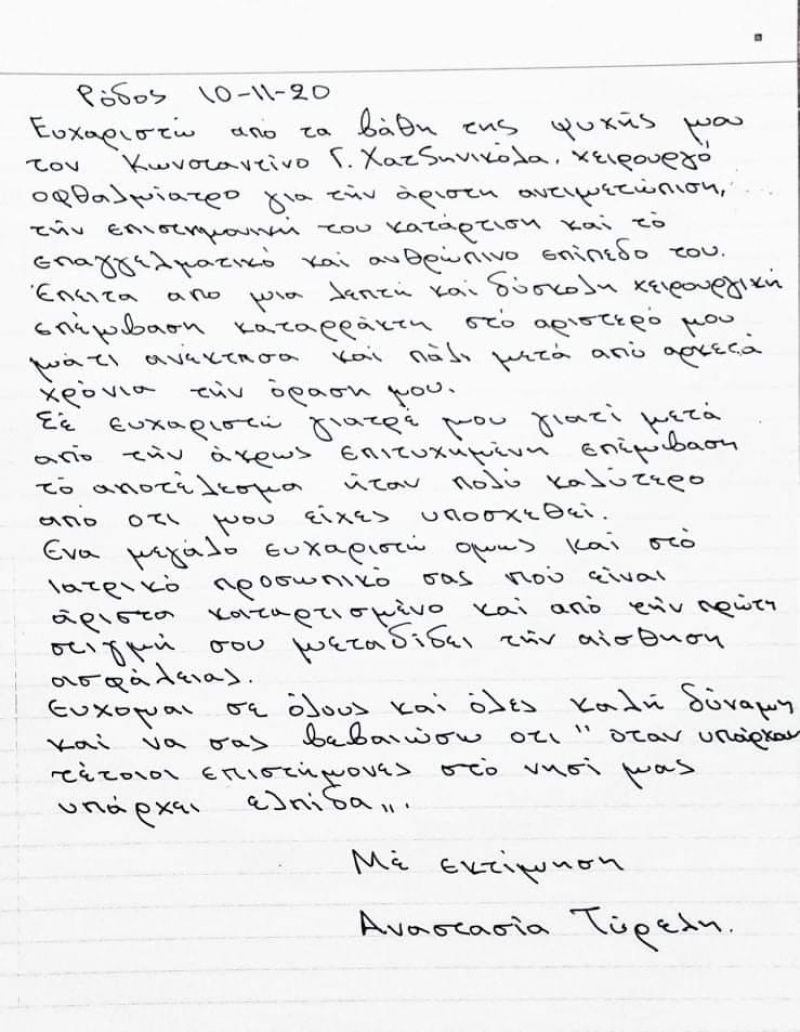 Ρόδος 10-11-20
Ευχαριστώ από τα βάθη της ψυχής μου
τον Κωνσταντίνο Γ. Χατζηνικόλα, χειρουργό
οφθαλμίατρο για τήν άριστη αντιμετώπιση,
τήν επιστημονική του κατάρτιση καί τό
επαγγελματικό καί ανθρώπινο επίπεδο του.
Έπειτα από μια λεπτή καί δύσκολη χειρουργική
επέμβαση καταρράκτη στό αριστερό μου
μάτι ανέκτησα καί πάλι μετά από αρκετά
χρόνια τήν όραση μου.
Σέ ευχαριστώ γιατρέ μου γιατί μετά
από τήν άκρως επιτυχημένη επέμβαση
τό αποτέλεσμα ήταν πολύ καλύτερο
από οτι μου είχες υποσχεθεί.
Ενα μεγάλο ευχαριστώ ομως καί στό
Ιατρικό προσωπικό σας πού είναι
άριστα καταρτισμένο καί από τήν πρώτη
στιγμή σου μεταδίδει τήν αίσθηση
ασφάλειας.
Ευχομαι σε όλους καί όλες καλή δύναμη
καί να σας βεβαιώσω οτι " οταν υπάρχουν
τέτοιοι επιστήμονες στό νησί μας
υπάρχει ελπίδα".
Μέ εκτίμηση
Αναστασία Τύρελη.